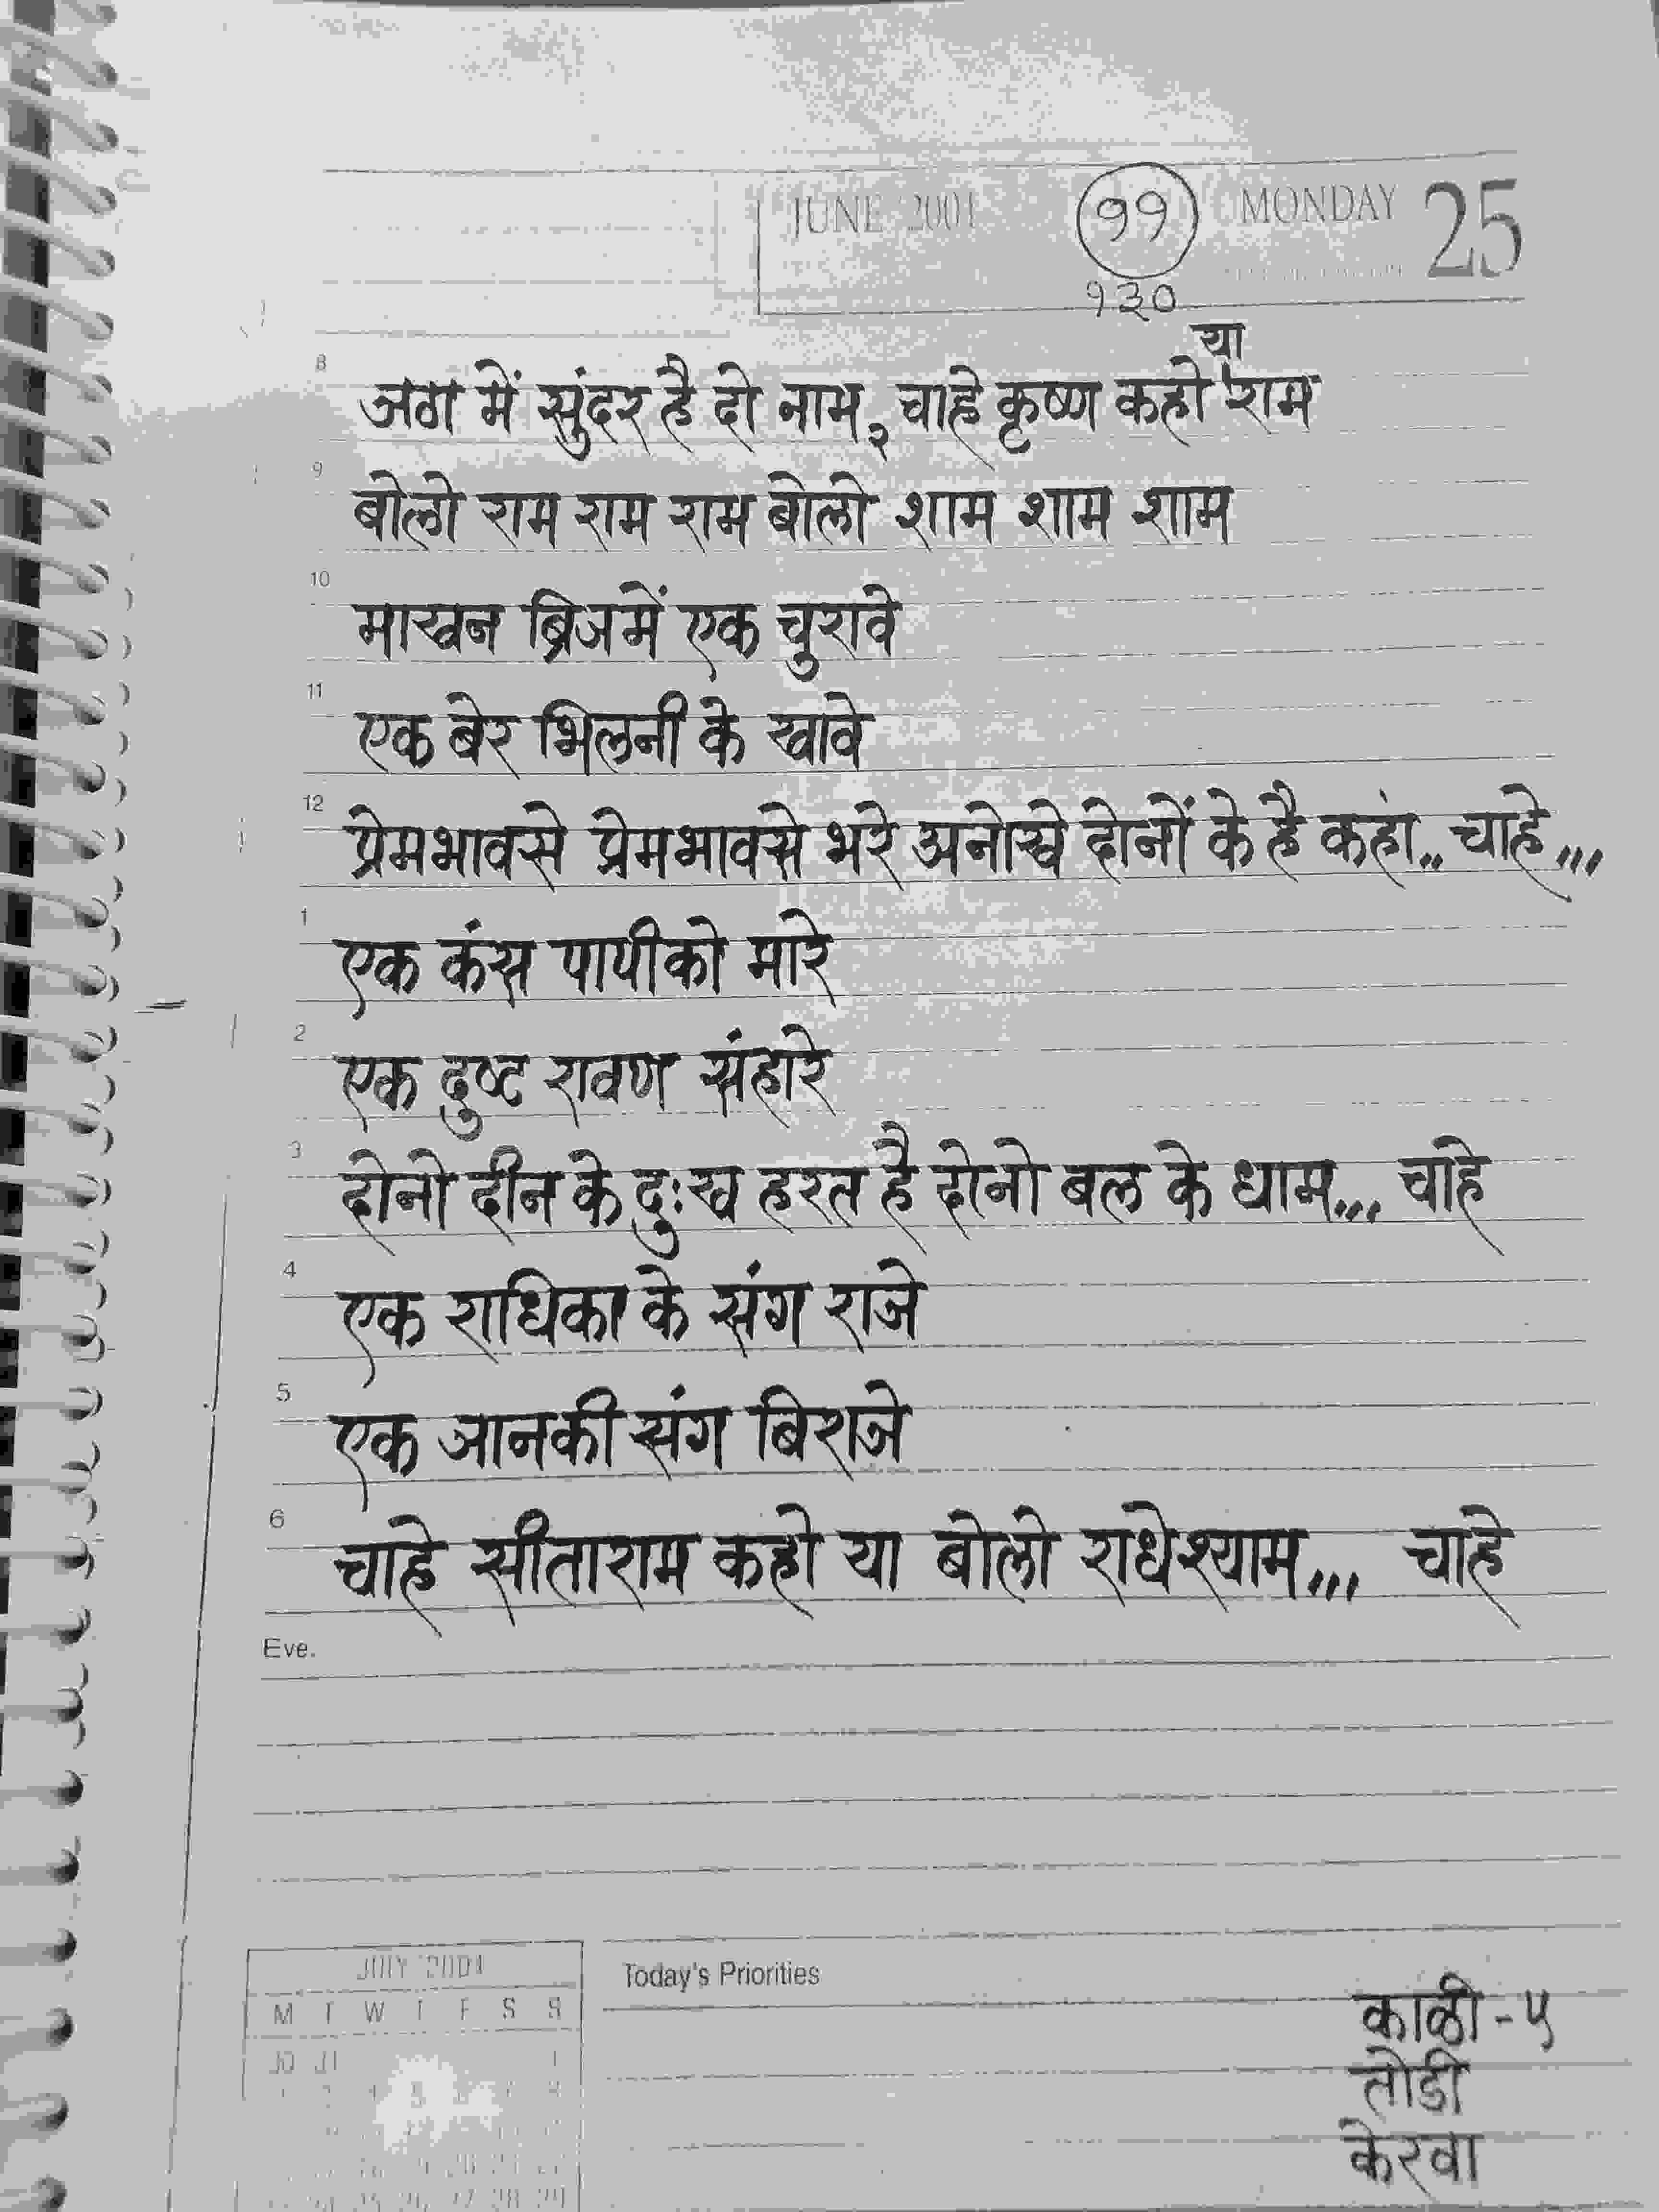 JUNE 2001 ९९ MONDAY 25
१३०
या
8 जग में सुंदर है दो नाम, २ चाहे कृष्ण कहो राम
9 बोलो राम राम राम बोलो शाम शाम शाम
10 माखन ब्रिजमें एक चुरावे
11 एक बेर भिलनी के खावे
12 प्रेमभावसे प्रेमभावसे भरे अनोखे दोनों के है कहां.. चाहे...
1 एक कंस पापीको मारे
2 एक दुष्ट रावण संहारे
3 दोनो दीन के दुःख हरत है दोनो बल के धाम... चाहे
4 एक राधिका के संग राजे
5 एक जानकी संग बिराजे
6 चाहे सीताराम कहो या बोलो राधेश्याम... चाहे
Eve.
JULY 2001
M T W T F S S
30 31 1
Today's Priorities
काळी - ५
तोडी
केरवा